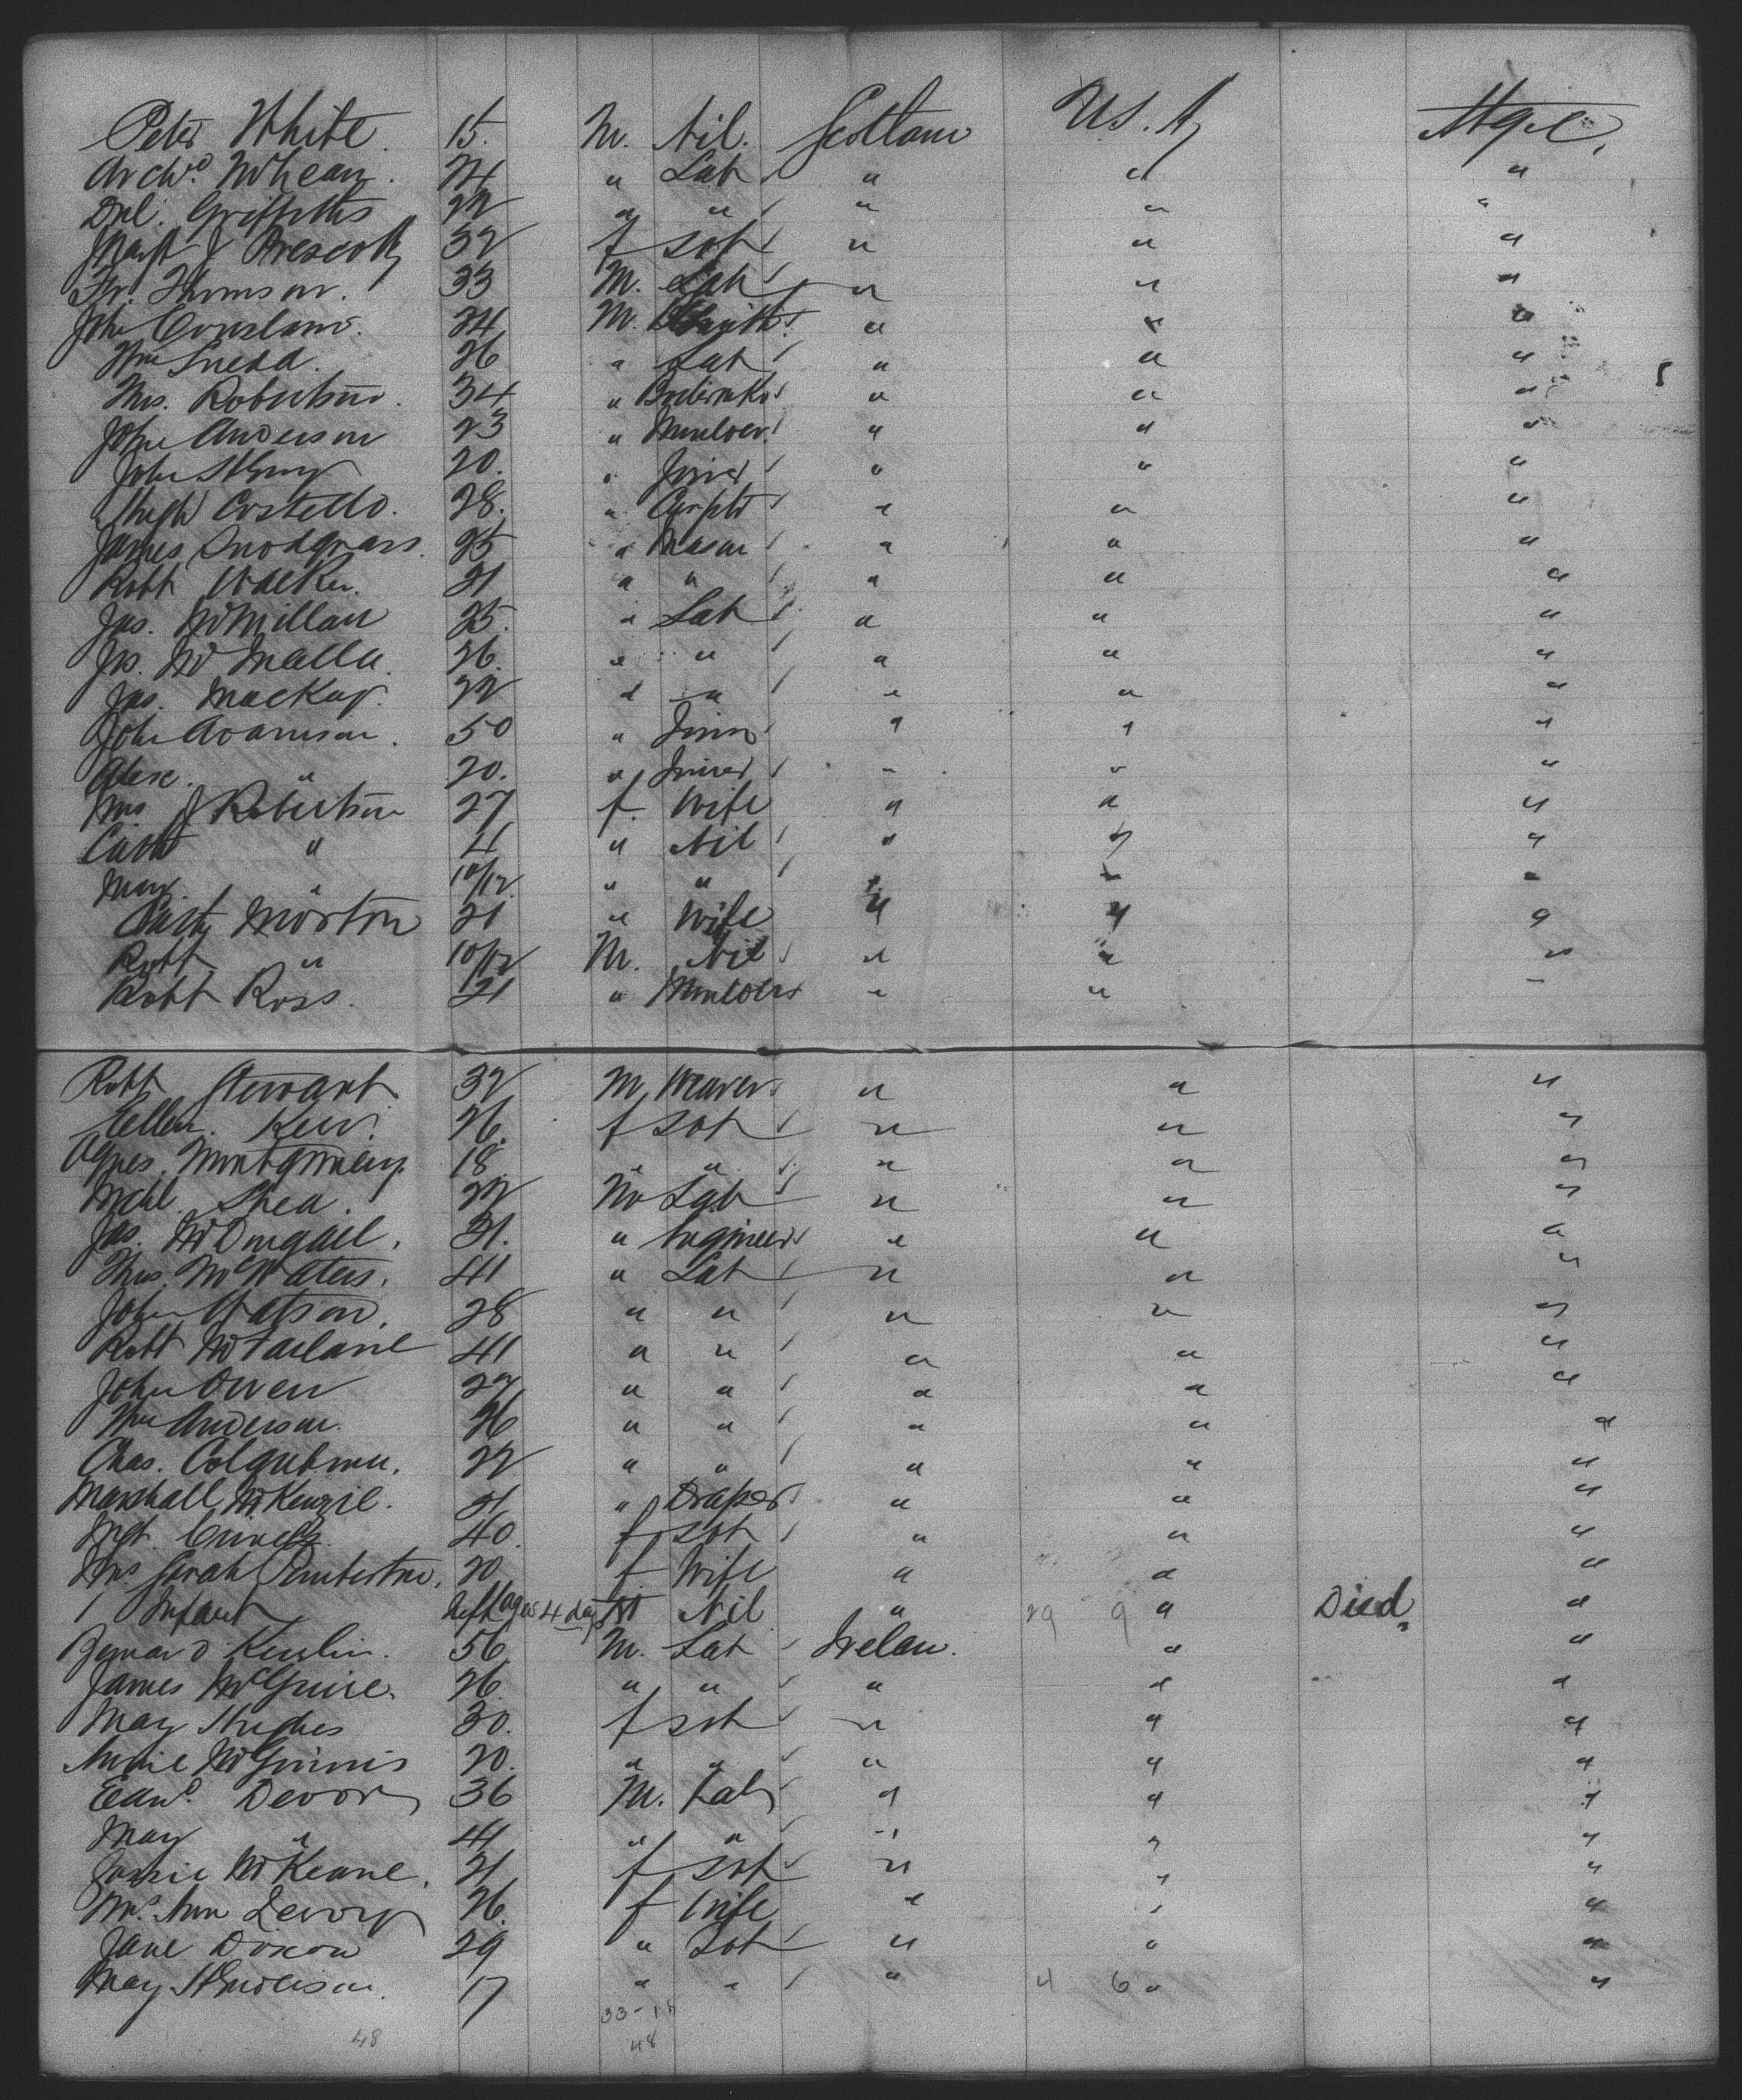 Peter White. 15. M. Nil. Scotland U.S.A Stge.
Archd. McLean. 24 " Lab " " "
Dnl. Griffiths 22 " " " " "
Margt J Prescott 32 f Spt " " "
Fr. Thomson. 33 M. Lab " " "
John 24 M. " " "
Wm Snedd. 26 " Lab " " "
Thos. Robertson. 34 " " " "
John Anderson 23 " Moulder " " "
John 20. " Joiner " " "
Hugh Costello. 28. " Carptr " " "
James Snodgrass. 25 " Mason " " "
Robt Walker. 21 " " " " "
Jas. McMillan 25. " Lab " " "
Js. 26. " " " " "
Jas. Mackay. 22 " " " " "
John Adamson. 50 " Joiner " " "
Alex. " 20. " Joiner " " "
Mrs J Robertson 27 f. Wife " " "
" 4 " Nil " " "
May " 10/12 " " " " "
Morton 21 " Wife " " "
Robt " 10/12 M. Nil " " "
Robt Ross. 21 " Moulder " " "
Robt Stewart 32 M Weaver " " "
Ellen Kerr. 26. f Spt " " "
Agnes Montgomery. 18 " " " " "
Mchl. Shea. 22 M Lab " " "
Jas. McDougall. 31. " Engineer " " "
Thos. McWaters. 41 " Lab " " "
John Watson. 28 " " " " "
Robt McFarlane 41 " " " " "
John Owen 27 " " " " "
Wm Anderson. 26 " " " " "
Chas. Colquhoun. 22 " " " " "
Marshall McKenzie. 21 " Draper " " "
Mgt. 40. f Spt " " "
Mrs Sarah Pemberton. 20 f Wife " " "
1 Infant aged 4 days M Nil " 29 9 " Died "
Kerlin. 56 M. Lab Ireland. " "
James McGuire. 26. " " " " "
May Hughes 30. f Spt " " "
Annie McGinnis 20. " " " " "
Edwd. Devor 36 M. Lab " " "
May " 41 " " " " "
McKeane. 21 f Spt " " "
Mrs. Ann 26. f Wife " " "
Jane Dixon 29 " Spt " " "
May 17 " " " 4 6 " "
33-15
48 48